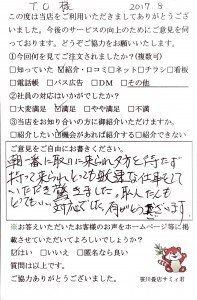 T.O 様 2017.9.
この度は当店をご利用いただきましてありがとうござい
ました。今後のサービスの向上のためにご意見を伺
っております。どうぞご協力をお願いいたします。
①今回何をみてご注文されましたか?(複数可)
□知っていた ☑紹介・口コミ □ネット □チラシ □看板
□電話帳 □バス広告 □DM □その他
②社員の対応はいかがでしたか?
□大変満足 ☑満足 □やや満足 □不満
③当店をお知り合いの方に御紹介いただけますか。
□紹介したい ☑機会があれば紹介する □紹介できない
ご意見をご自由にお書きください。
朝一番に取りに来られ夕方を待たず
持って来られとても敏速な仕事して
いただき驚きました。職人さんも
とても 対応 有がとう
※お答えいただいたお客様のお声をホームページ等に掲
載させていただいてよろしいでしょうか?
☑はい □いいえ □匿名なら良い
質問は以上です。
ご協力ありがとうございました。
笹川畳店サミィ君